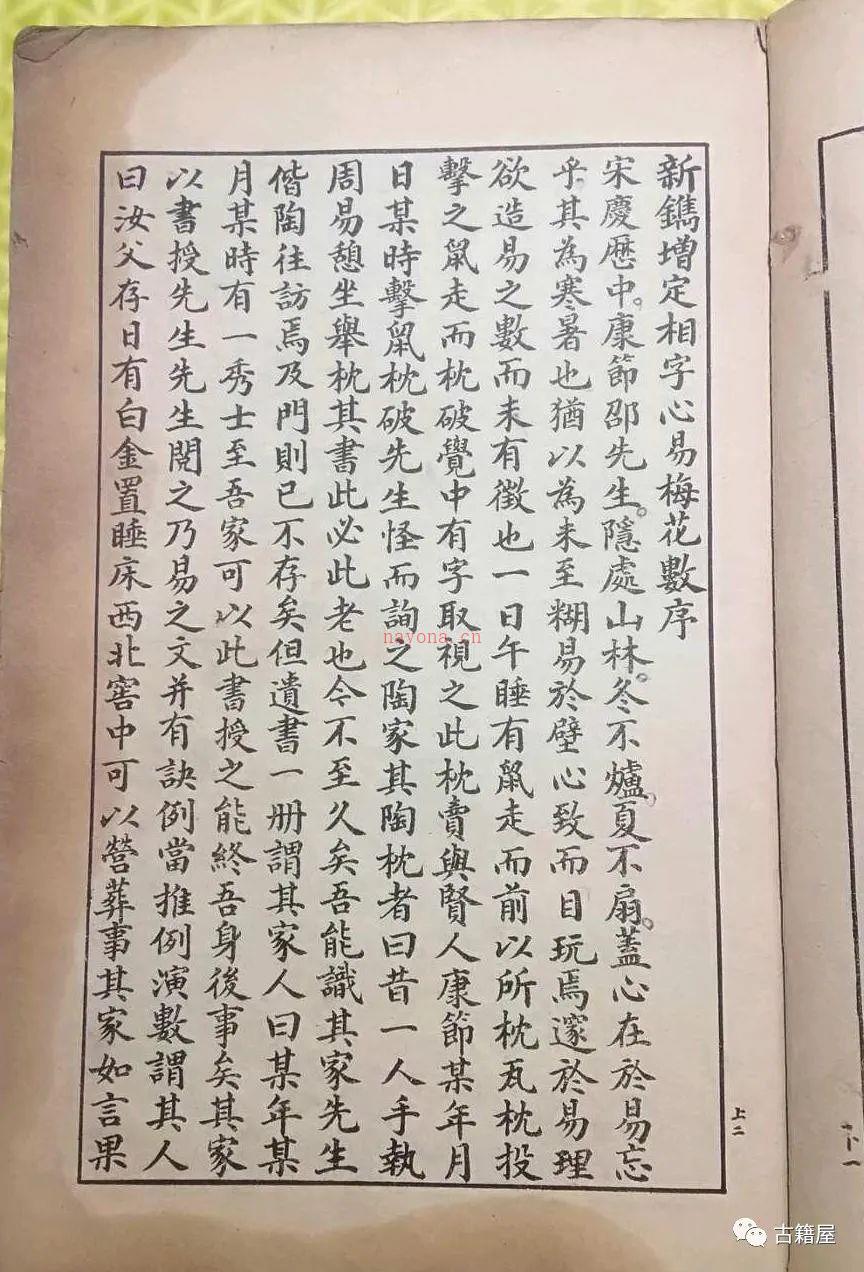 新鐫增定相字心易梅花數序
宋慶歷中。康節邵先生。隱處山林。冬不爐。夏不扇。蓋心在於易忘
乎。其為寒暑也猶以為未至糊易於壁心致而目玩焉邃於易理
欲造易之數而未有徵也一日午睡有鼠走而前以所枕瓦枕投
擊之鼠走而枕破覺中有字取視之此枕賣與賢人康節某年月
日某時擊鼠枕破先生怪而詢之陶家其陶枕者曰昔一人手執
周易憩坐舉枕其書此必此老也今不至久矣吾能識其家先生
偕陶往訪焉及門則已不存矣但遺書一册謂其家人曰某年某
月某時有一秀士至吾家可以此書授之能終吾身後事矣其家
以書授先生先生閱之乃易之文并有訣例當推例演數謂其人
曰汝父存日有白金置睡床西北窖中可以營葬事其家如言果
上二
卜一
nayona.cn
古籍屋